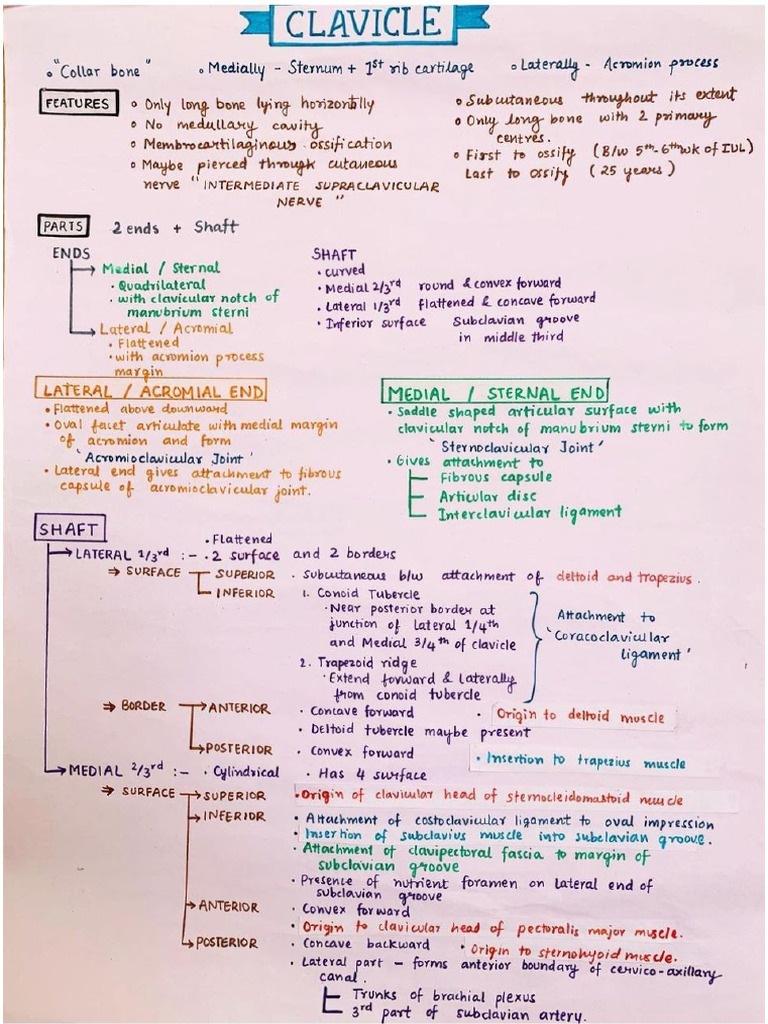 CLAVICLE
• "Collar bone"
• Medially - Sternum + 1st rib cartilage
• Laterally - Acromion process
FEATURES
• Only long bone lying horizontally
• No medullary cavity
• Membrocartilaginous ossification
• Maybe pierced through cutaneous
nerve "INTERMEDIATE SUPRACLAVICULAR
NERVE"
• Subcutaneous throughout its extent
• Only long bone with 2 primary
centres.
• First to ossify (B/w 5th-6thwk of IUL)
Last to ossify (25 years)
PARTS 2 ends + Shaft
ENDS
→ Medial / Sternal
• Quadrilateral
• with clavicular notch of
manubrium sterni
→ Lateral / Acromial
• Flattened
• with acromion process
margin
SHAFT
• curved
• Medial 2/3rd round & convex forward
• Lateral 1/3rd flattened & concave forward
• Inferior surface Subclavian groove
in middle third
LATERAL / ACROMIAL END
• Flattened above downward
• Oval facet articulate with medial margin
of acromion and form
'Acromioclavicular Joint'
• Lateral end gives attachment to fibrous
capsule of acromioclavicular joint.
MEDIAL / STERNAL END
• Saddle shaped articular surface with
clavicular notch of manubrium sterni to form
'Sternoclavicular Joint'
• Gives attachment to
Fibrous capsule
Articular disc
Interclavicular ligament
SHAFT
• Flattened
→ LATERAL 1/3rd :- • 2 surface and 2 borders
⇒ SURFACE SUPERIOR • Subcutaneous b/w attachment of deltoid and trapezius.
INFERIOR 1. Conoid Tubercle
• Near posterior border at
junction of lateral 1/4th
and Medial 3/4th of clavicle
2. Trapezoid ridge
• Extend forward & laterally
from conoid tubercle
Attachment to
'Coracoclavicular
ligament'
⇒ BORDER → ANTERIOR • Concave forward • Origin to deltoid muscle
• Deltoid tubercle maybe present
→ POSTERIOR • Convex forward • Insertion to trapezius muscle
→ MEDIAL 2/3rd :- • Cylindrical • Has 4 surface
⇒ SURFACE → SUPERIOR • Origin of clavicular head of sternocleidomastoid muscle
→ INFERIOR • Attachment of costoclavicular ligament to oval impression
• Insertion of subclavius muscle into subclavian groove.
• Attachment of clavipectoral fascia to margin of
subclavian groove
• Presence of nutrient foramen on lateral end of
subclavian groove
→ ANTERIOR • Convex forward
• Origin to clavicular head of pectoralis major muscle.
→ POSTERIOR • Concave backward • Origin to sternohyoid muscle.
• Lateral part - forms anterior boundary of cervico-axillary
canal.
Trunks of brachial plexus
3rd part of subclavian artery.